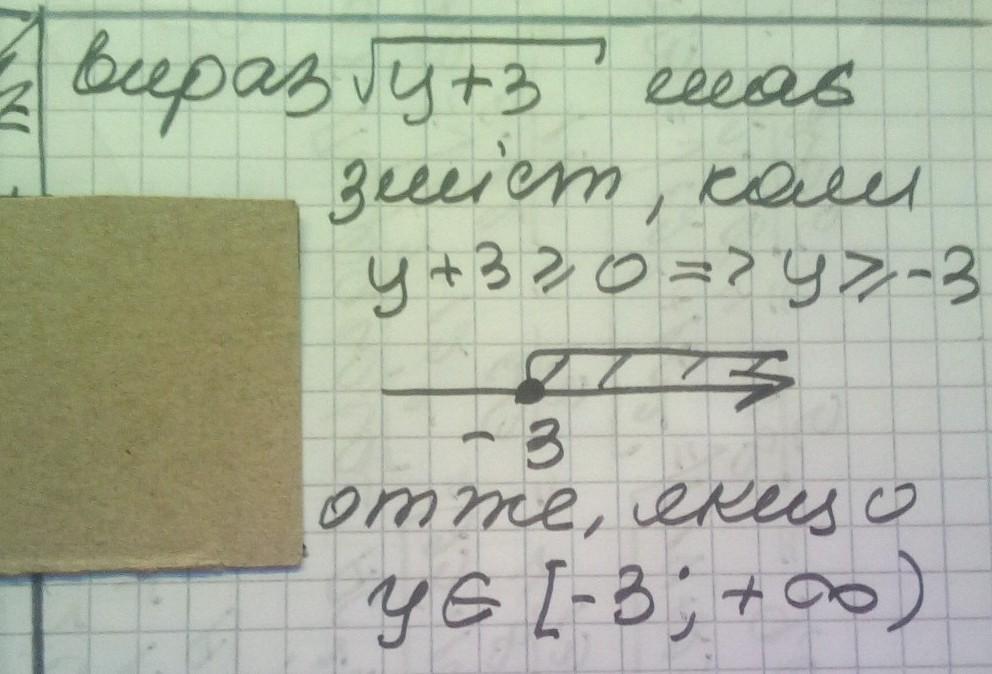 вираз √y+3 має
зміст, коли
y+3≥0 => y≥-3
-3
отже, якщо
y∈[-3;+∞)